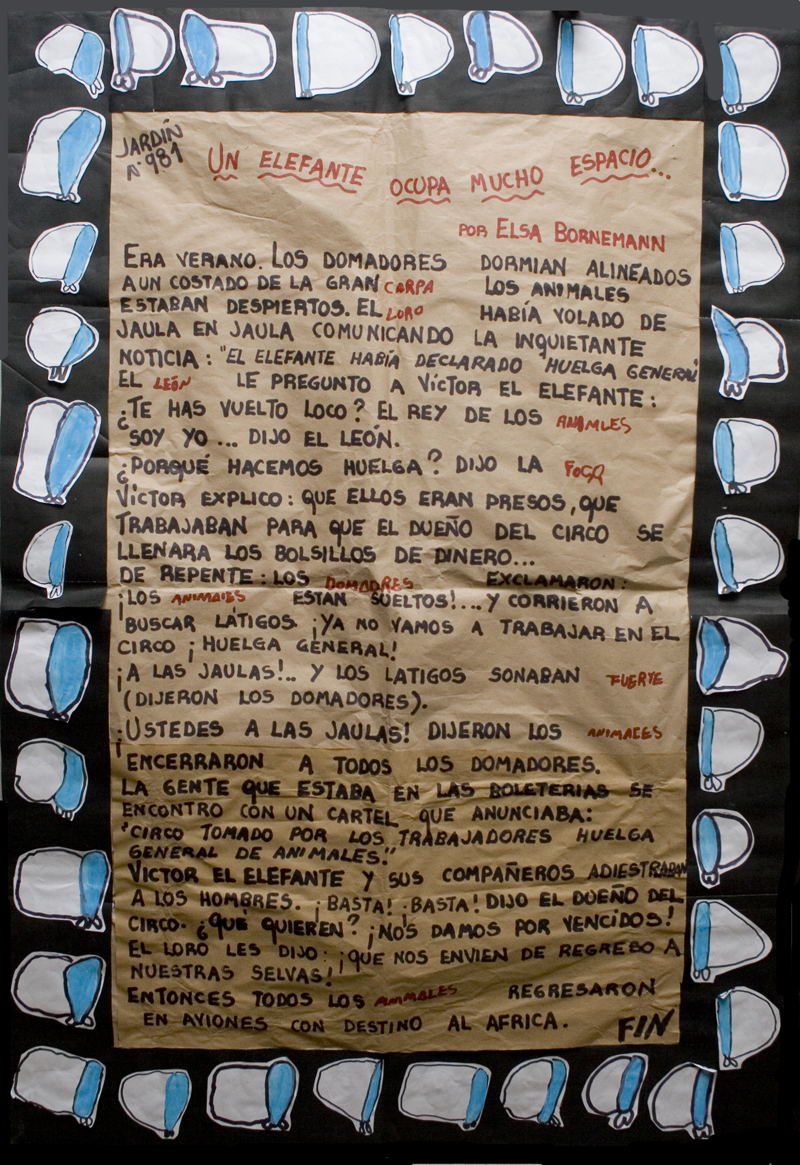 JARDÍN
N° 981
UN ELEFANTE OCUPA MUCHO ESPACIO...
POR ELSA BORNEMANN
ERA VERANO. LOS DOMADORES DORMIAN ALINEADOS
A UN COSTADO DE LA GRAN CARPA LOS ANIMALES
ESTABAN DESPIERTOS. EL LORO HABÍA VOLADO DE
JAULA EN JAULA COMUNICANDO LA INQUIETANTE
NOTICIA: "EL ELEFANTE HABÍA DECLARADO "HUELGA GENERAL"
EL LEÓN LE PREGUNTO A VÍCTOR EL ELEFANTE:
¿TE HAS VUELTO LOCO? EL REY DE LOS ANIMLES
SOY YO... DIJO EL LEÓN.
¿PORQUÉ HACEMOS HUELGA? DIJO LA FOCA
VÍCTOR EXPLICO: QUE ELLOS ERAN PRESOS, QUE
TRABAJABAN PARA QUE EL DUEÑO DEL CIRCO SE
LLENARA LOS BOLSILLOS DE DINERO...
DE REPENTE: LOS DOMADRES EXCLAMARON:
¡LOS ANIMALES ESTAN SUELTOS!... Y CORRIERON A
BUSCAR LÁTIGOS. ¡YA NO VAMOS A TRABAJAR EN EL
CIRCO ¡HUELGA GENERAL!
¡A LAS JAULAS!.. Y LOS LATIGOS SONABAN FUERTE
(DIJERON LOS DOMADORES).
¡USTEDES A LAS JAULAS! DIJERON LOS ANIMALES
ENCERRARON A TODOS LOS DOMADORES.
LA GENTE QUE ESTABA EN LAS BOLETERIAS SE
ENCONTRO CON UN CARTEL QUE ANUNCIABA:
"CIRCO TOMADO POR LOS TRABAJADORES HUELGA
GENERAL DE ANIMALES."
VICTOR EL ELEFANTE Y SUS COMPAÑEROS ADIESTRABAN
A LOS HOMBRES. ¡BASTA! ¡BASTA! DIJO EL DUEÑO DEL
CIRCO. ¿QUÉ QUIEREN? ¡NOS DAMOS POR VENCIDOS!
EL LORO LES DIJO: ¡QUE NOS ENVIEN DE REGRESO A
NUESTRAS SELVAS!
ENTONCES TODOS LOS ANIMALES REGRESARON
EN AVIONES CON DESTINO AL AFRICA. FIN